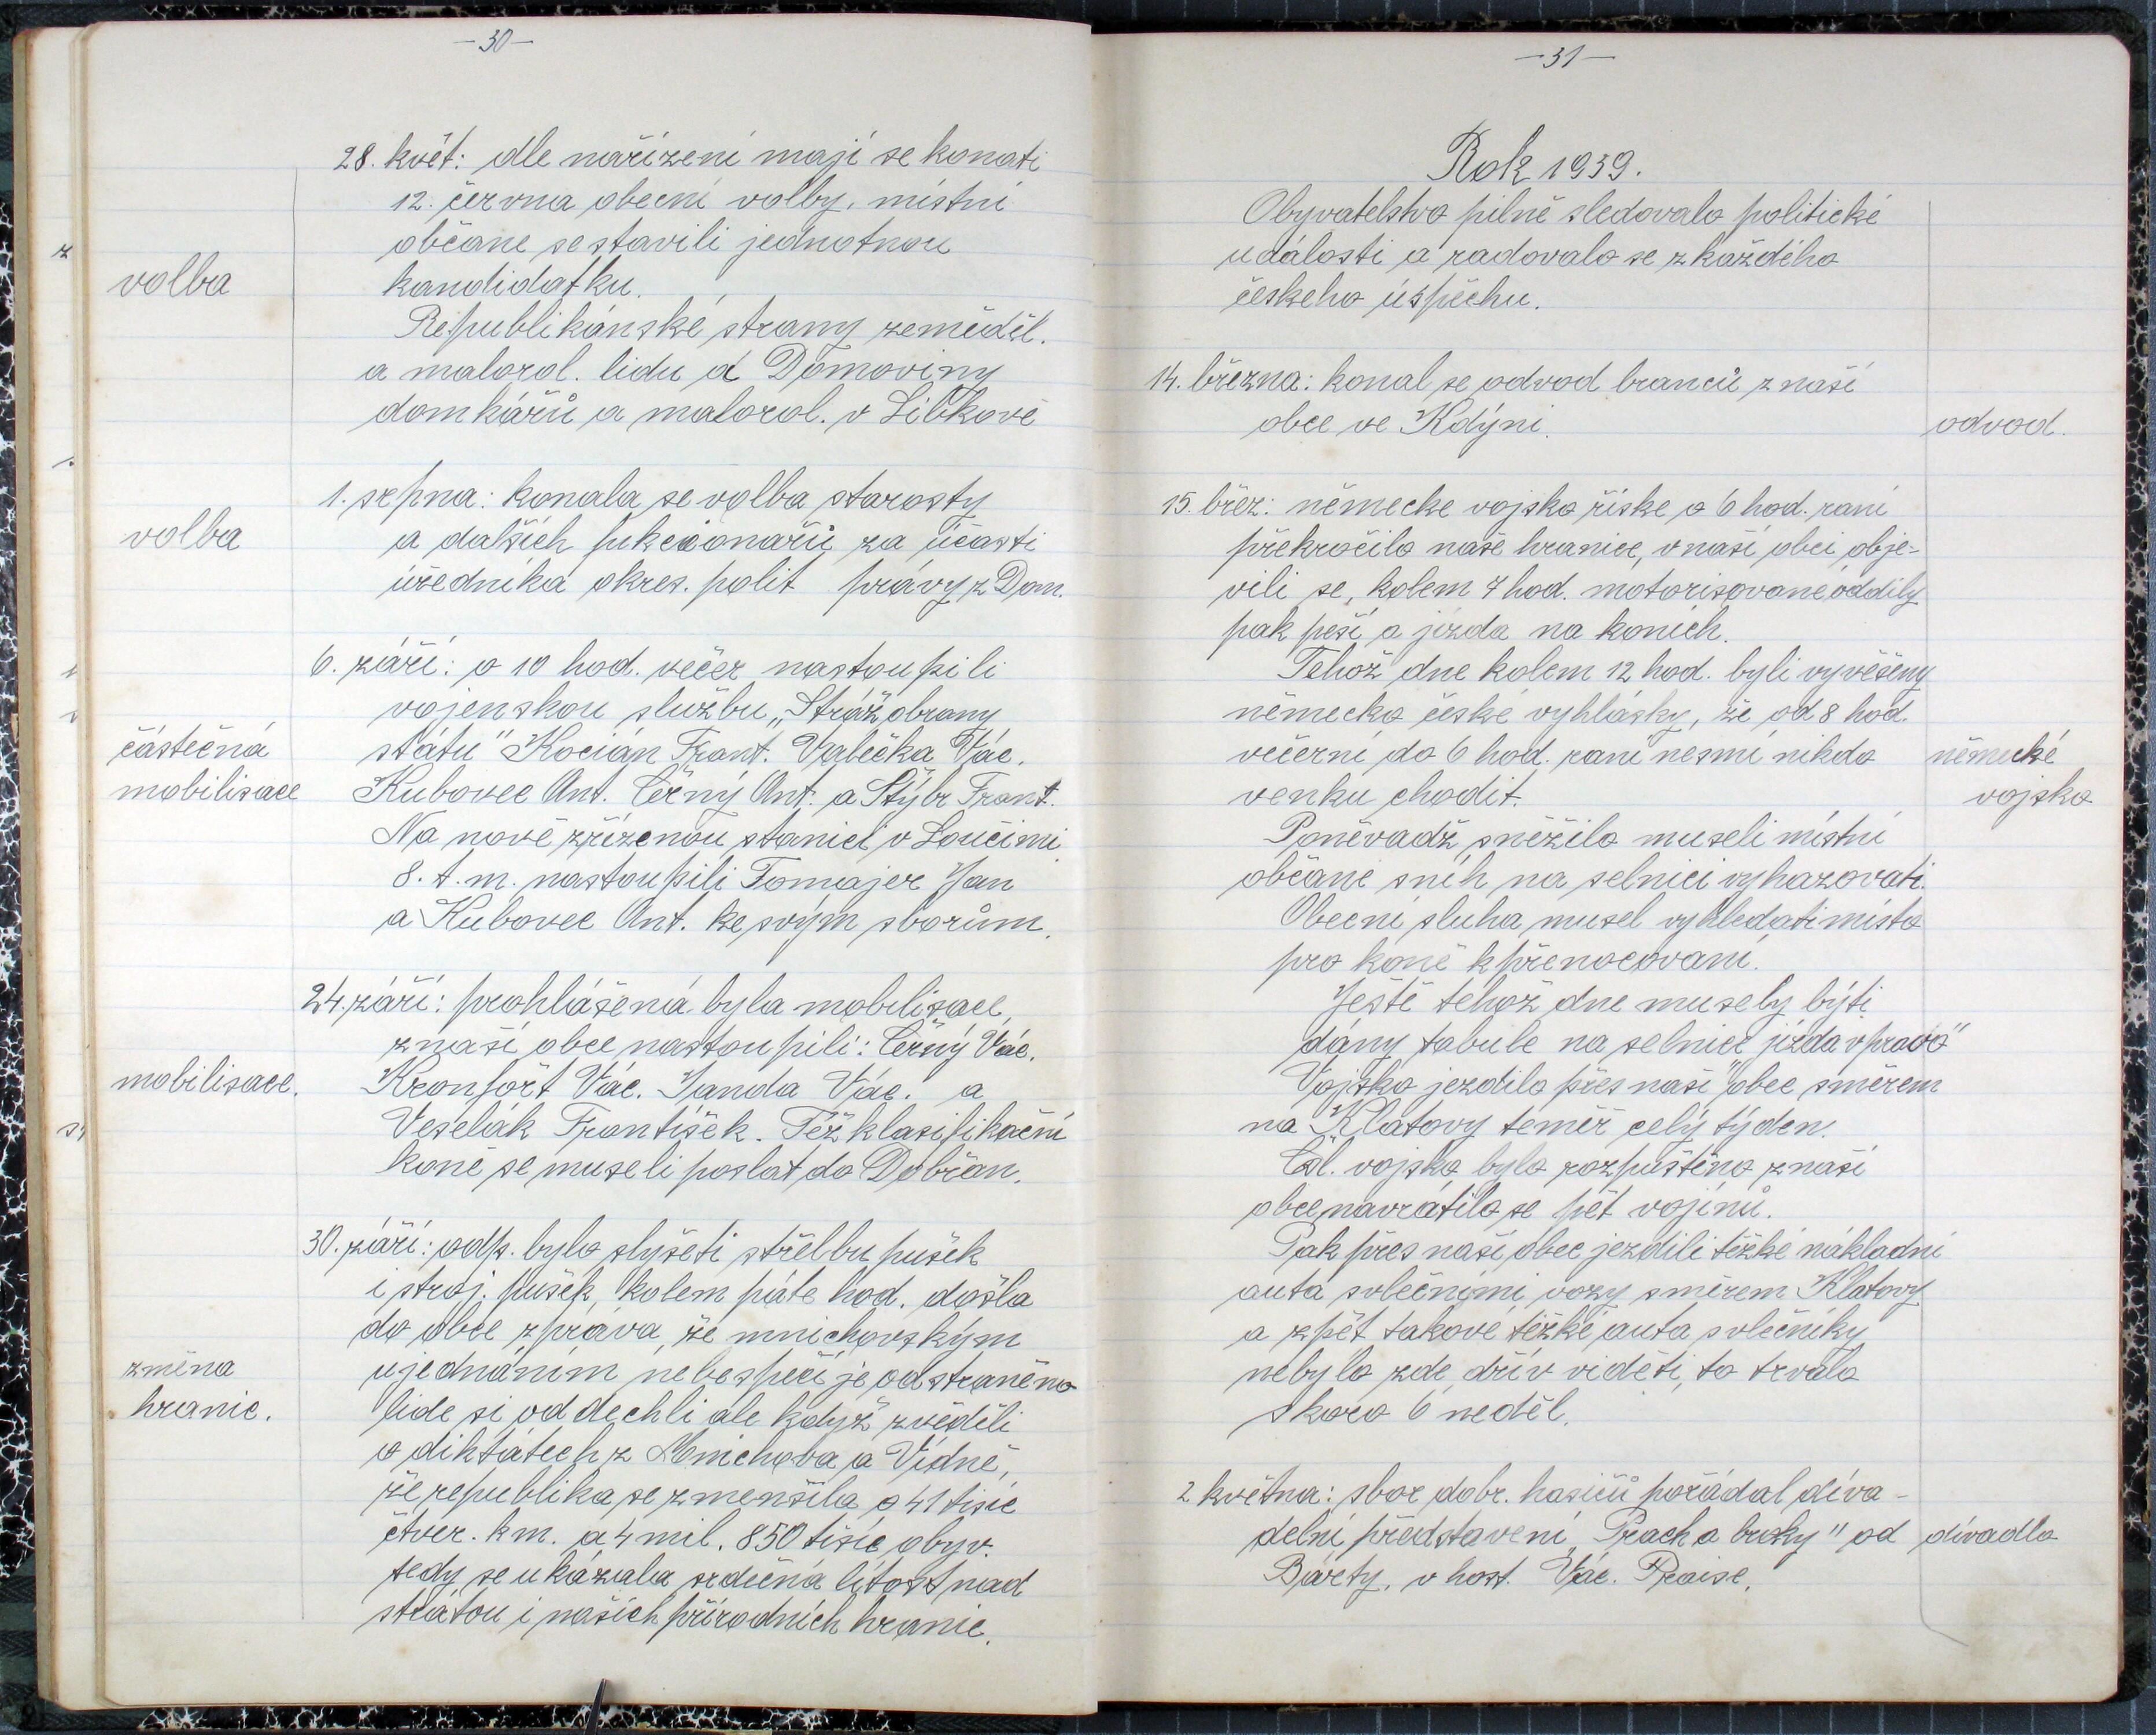 -30-
28. květ: dle nařízení mají se konati
12. června obecní volby, místní
občane sestavili jednotnou
volba
kandidatku.
Republikánské strany zeměděl.
a malorol. lidu a Domoviny
domkářů a malorol. v Libkově
1. srpna: konala se volba starosty
volba
a dalších fukcionářů za účasti
úředníka okres. polit právy z Dom.
6. září: o 10 hod. večer nastoupili
vojenskou službu „Stráž obrany
částečná
státu" Kocián Frant. Valečka Vác.
mobilisace
Kubovec Ant. Černý Ant. a Stýbr Frant.
Na nově zřízenou stanici v Loučimi
8. t. m. nastoupili Tomajer Jan
a Kubovec Ant. ke svým sborům.
24. září: prohlášená byla mobilisace,
z naší obce nastoupili: Černý Vác.
mobilisace.
Kronfořt Vác. Janda Vác. a
Veselák František. Též klasifikační
koně se museli poslat do Dobřan.
30. září: odp. bylo slyšeti střelbu pušek
i stroj. pušek, kolem páte hod. došla
do obce zpráva, že mnichovským
změna
ujednáním nebespečí je odstraněno
hranic.
lide si oddechli ale když zvěděli
o diktátech z Mnichova a Vídně,
že republika se zmenšila o 41 tisíc
čtver. km. a 4 mil. 850 tisíc obyv.
tedy se ukázala srdečná lítost nad
strátou i našich přírodních hranic.
-31-
Rok 1939.
Obyvatelstvo pilně sledovalo politické
události a radovalo se z každého
českeho úspěchu.
14. března: konal se odvod branců z naší
obce ve Kdýni.
odvod.
15. břez: německe vojsko říske o 6 hod. raní
překročilo naše hranice, v naší obci obje-
vili se, kolem 7 hod. motorisované oddíly
pak pěší a jízda na koních.
Tehož dne kolem 12 hod. byli vyvěšeny
německo české vyhlásky, že od 8 hod.
večerní do 6 hod. raní nesmí nikdo
německé
venku chodit.
vojsko
Poněvadž sněžilo museli místní
občané sníh na selnici vyhazovati.
Obecní sluha musel vyhledati místo
pro koně k přenocovaní.
Ještě tehož dne museby býti
dány tabule na selnici jízda vpravo"
Vojsko jezdilo přes naši obec směrem
na Klatovy téměř celý týden.
Čsl. vojsko bylo rozpuštěno z naší
obce navrátilo se pět vojínů.
Pak přes naši obec jezdili těžké nákladní
auta svlečnými vozy směrem Klatovy
a zpět takové těžké auta s vlečníky
nebylo zde dřív viděti, to trvalo
skoro 6 neděl.
2 května: sbor dobr. hasičů pořádal díva-
delní představení „Prach a broky" od
dívadlo
Bárty, v host. Vác. Praise.